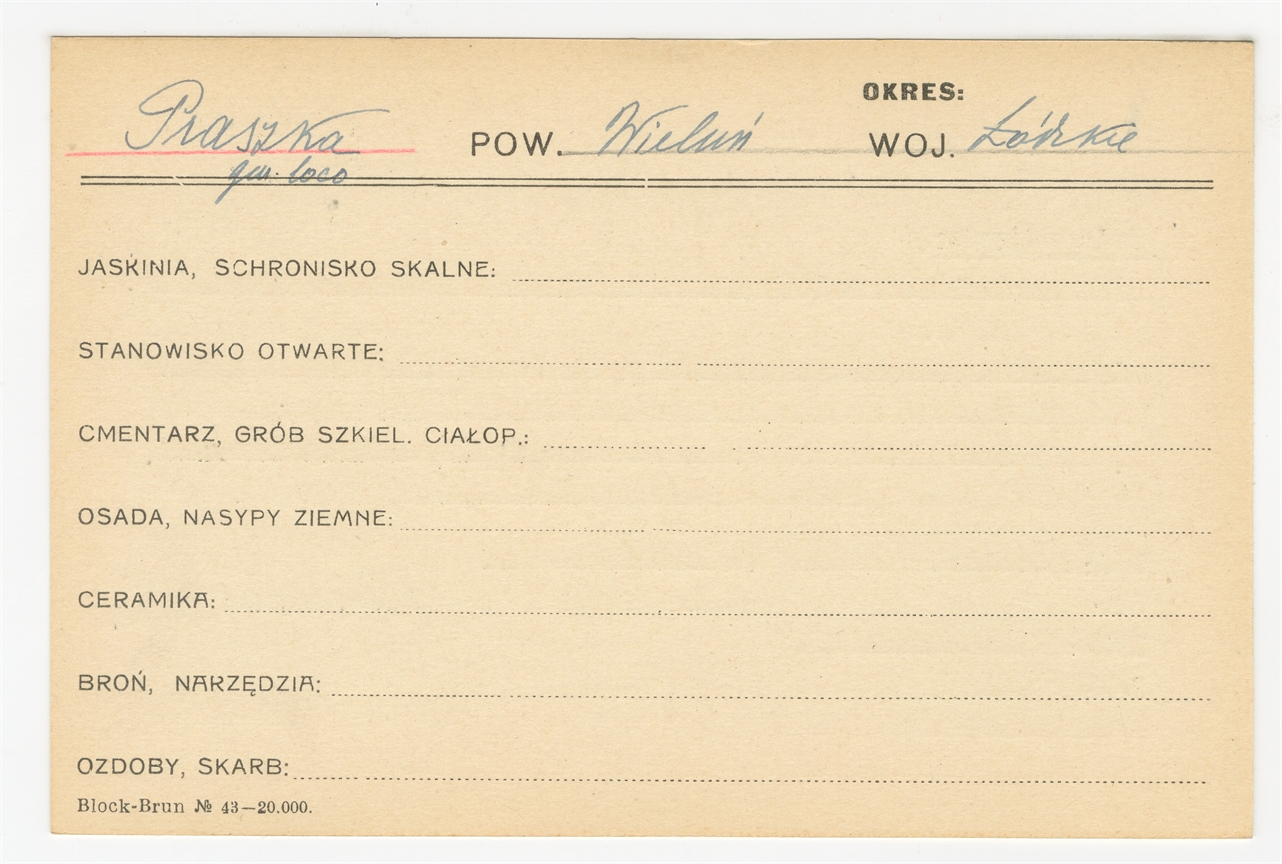 OKRES:
Praszka POW. Wieluń WOJ. Łódzkie
gm. loco
JASKINIA, SCHRONISKO SKALNE:
STANOWISKO OTWARTE:
CMENTARZ, GRÓB SZKIEL. CIAŁOP.:
OSADA, NASYPY ZIEMNE:
CERAMIKA:
BROŃ, NARZĘDZIA:
OZDOBY, SKARB:
Block-Brun № 43—20.000.